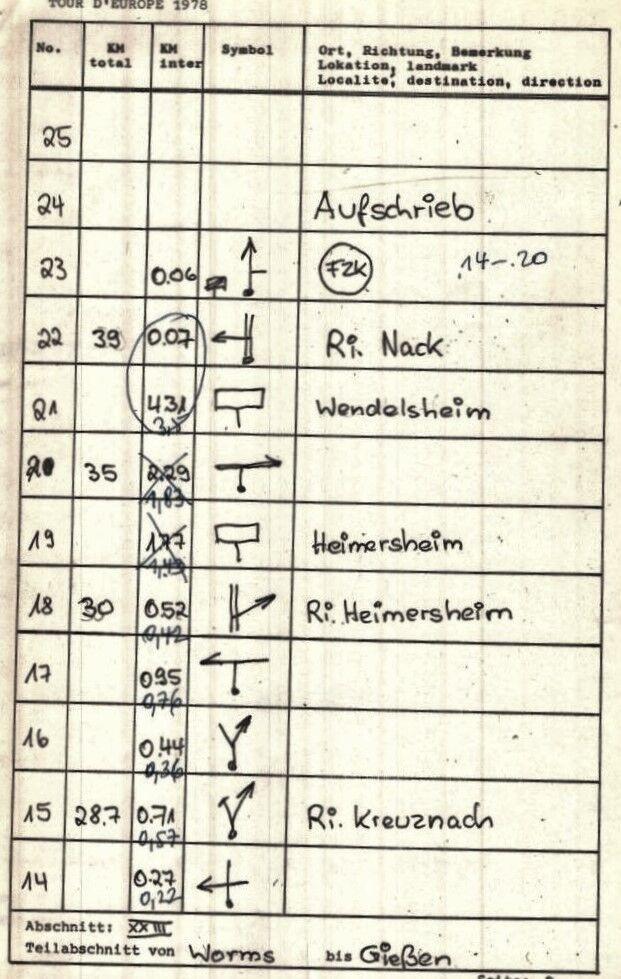 TOUR D'EUROPE 1978
No. KM total KM inter Symbol Ort, Richtung, Bemerkung
Lokation, landmark
Localité, destination, direction
25
24 Aufschrieb
23 0.06 FZK .14-.20
22 39 0.07 Ri. Nack
21 4.31 Wendelsheim
20 35 2.29
1,83
19 1.77 Heimersheim
1,43
18 30 0.52 Ri. Heimersheim
0,42
17 0.95
0,76
16 0.44
0,36
15 28.7 0.71 Ri. Kreuznach
0,57
14 0.27
0,22
Abschnitt: XXIII
Teilabschnitt von Worms bis Gießen